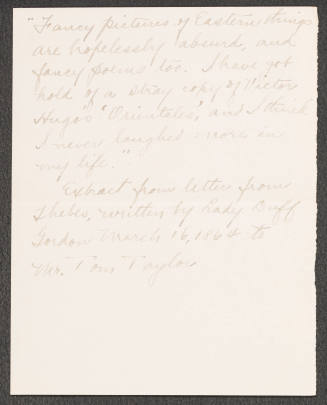 "Fancy pictures of Eastern things
are hopelessly absurd, and
fancy poems too. I have got
hold of a stray copy of Victor
Hugo's "Orientales", and I think
I never laughed more in
my life."
Extract from letter from
Thebes, written by Lady Duff
Gordon March 16, 1864 to
Mr. Tom Taylor